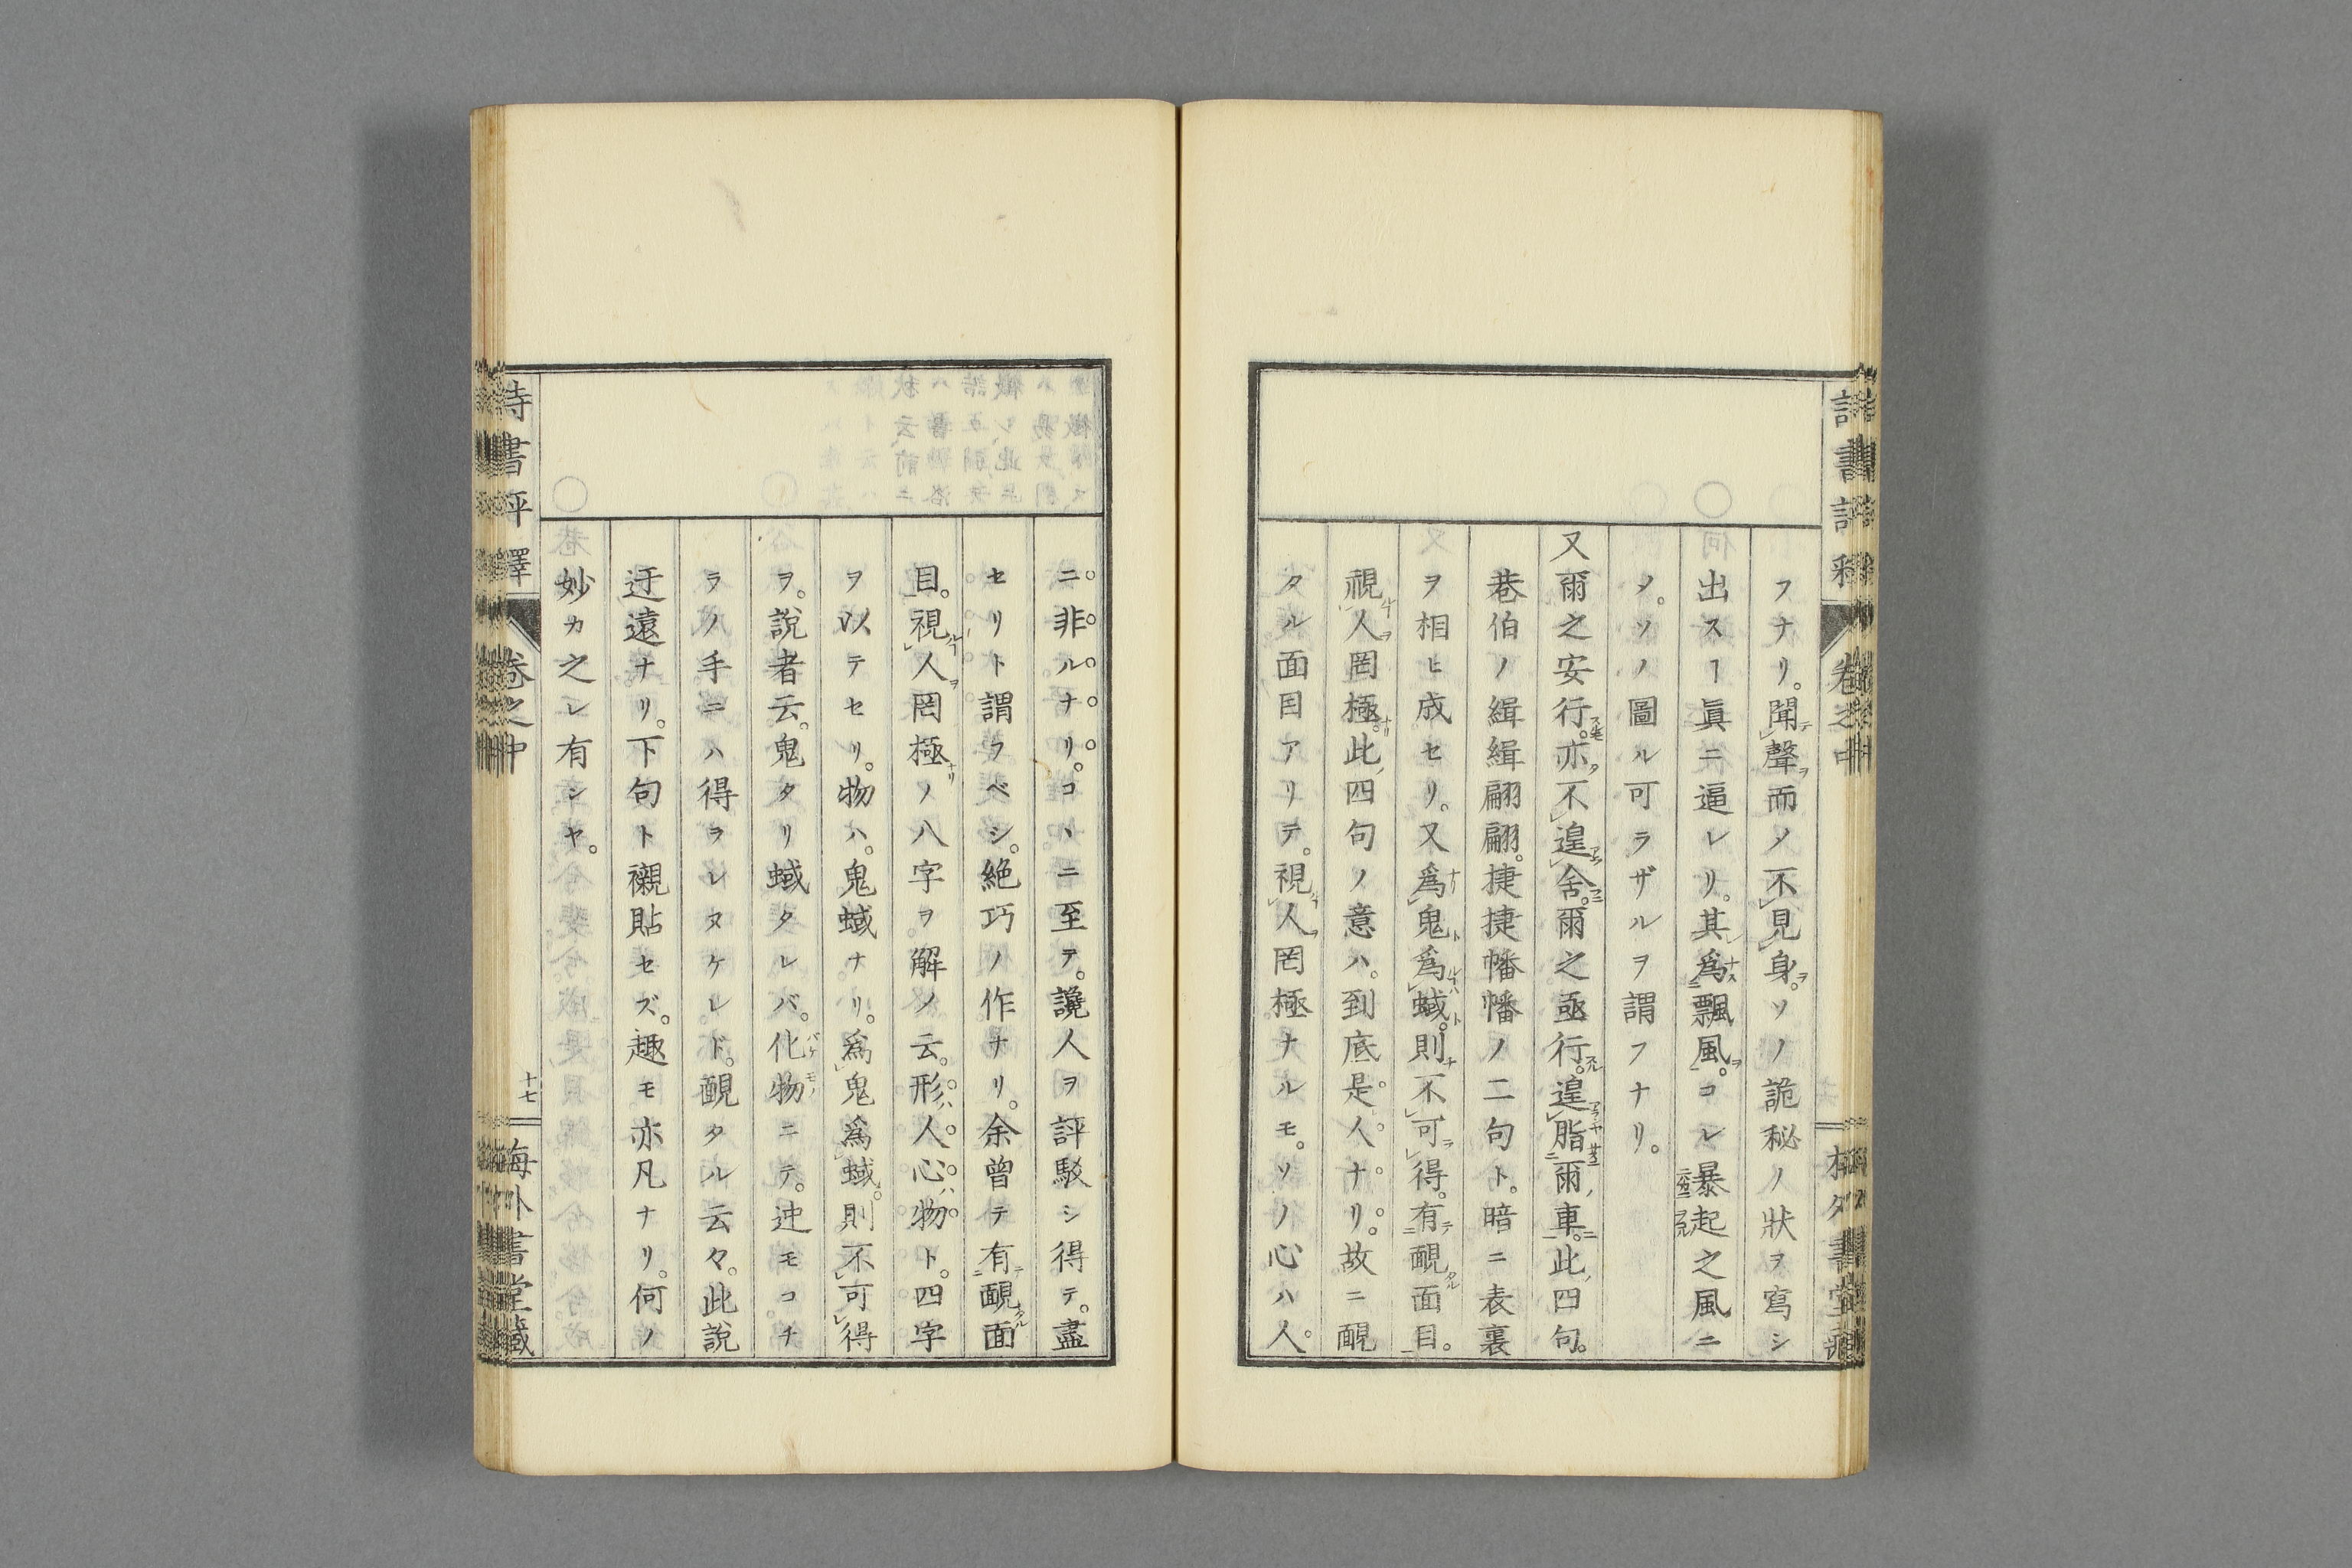 フナリ。聞聲而ノ不見身。ソノ詭秘ノ狀ヲ寫シ
出スヿ眞ニ逼レリ。其爲飄風。コレ暴起之風ニ
ノ。ソノ圖ル可ラザルヲ謂フナリ。
又爾之安行。亦不遑舍。爾之亟行。遑脂爾車。此四句。
巷伯ノ緝緝翩翩。捷捷幡幡ノ二句ト。暗ニ表裏
ヲ相ヒ成セリ。又爲鬼爲蜮。則不可得。有靦面目。
視人罔極。此四句ノ意ハ。到底是人ナリ。故ニ靦
タル面目アリテ。視人罔極ナルモ。ソノ心ハ人
ニ非ルナリ。コヽニ至テ。讒人ヲ評駁シ得テ。盡
セリト謂フベシ。絶巧ノ作ナリ。余曾テ有靦面
目。視人罔極ノ八字ヲ解ノ云。形ハ人。心ハ物ト。四字
ヲ以テセリ。物ハ。鬼蜮ナリ。爲鬼爲蜮。則不可得
ヲ。說者云。鬼タリ蜮タレバ。化物ニテ。迚モコチ
ラノ手ニハ得ラレヌケレド。靦タル云々。此說
迂遠ナリ。下句ト襯貼セズ。趣モ亦凡ナリ。何ノ
妙カ之レ有シヤ。
詩書評釋
卷之中
十七